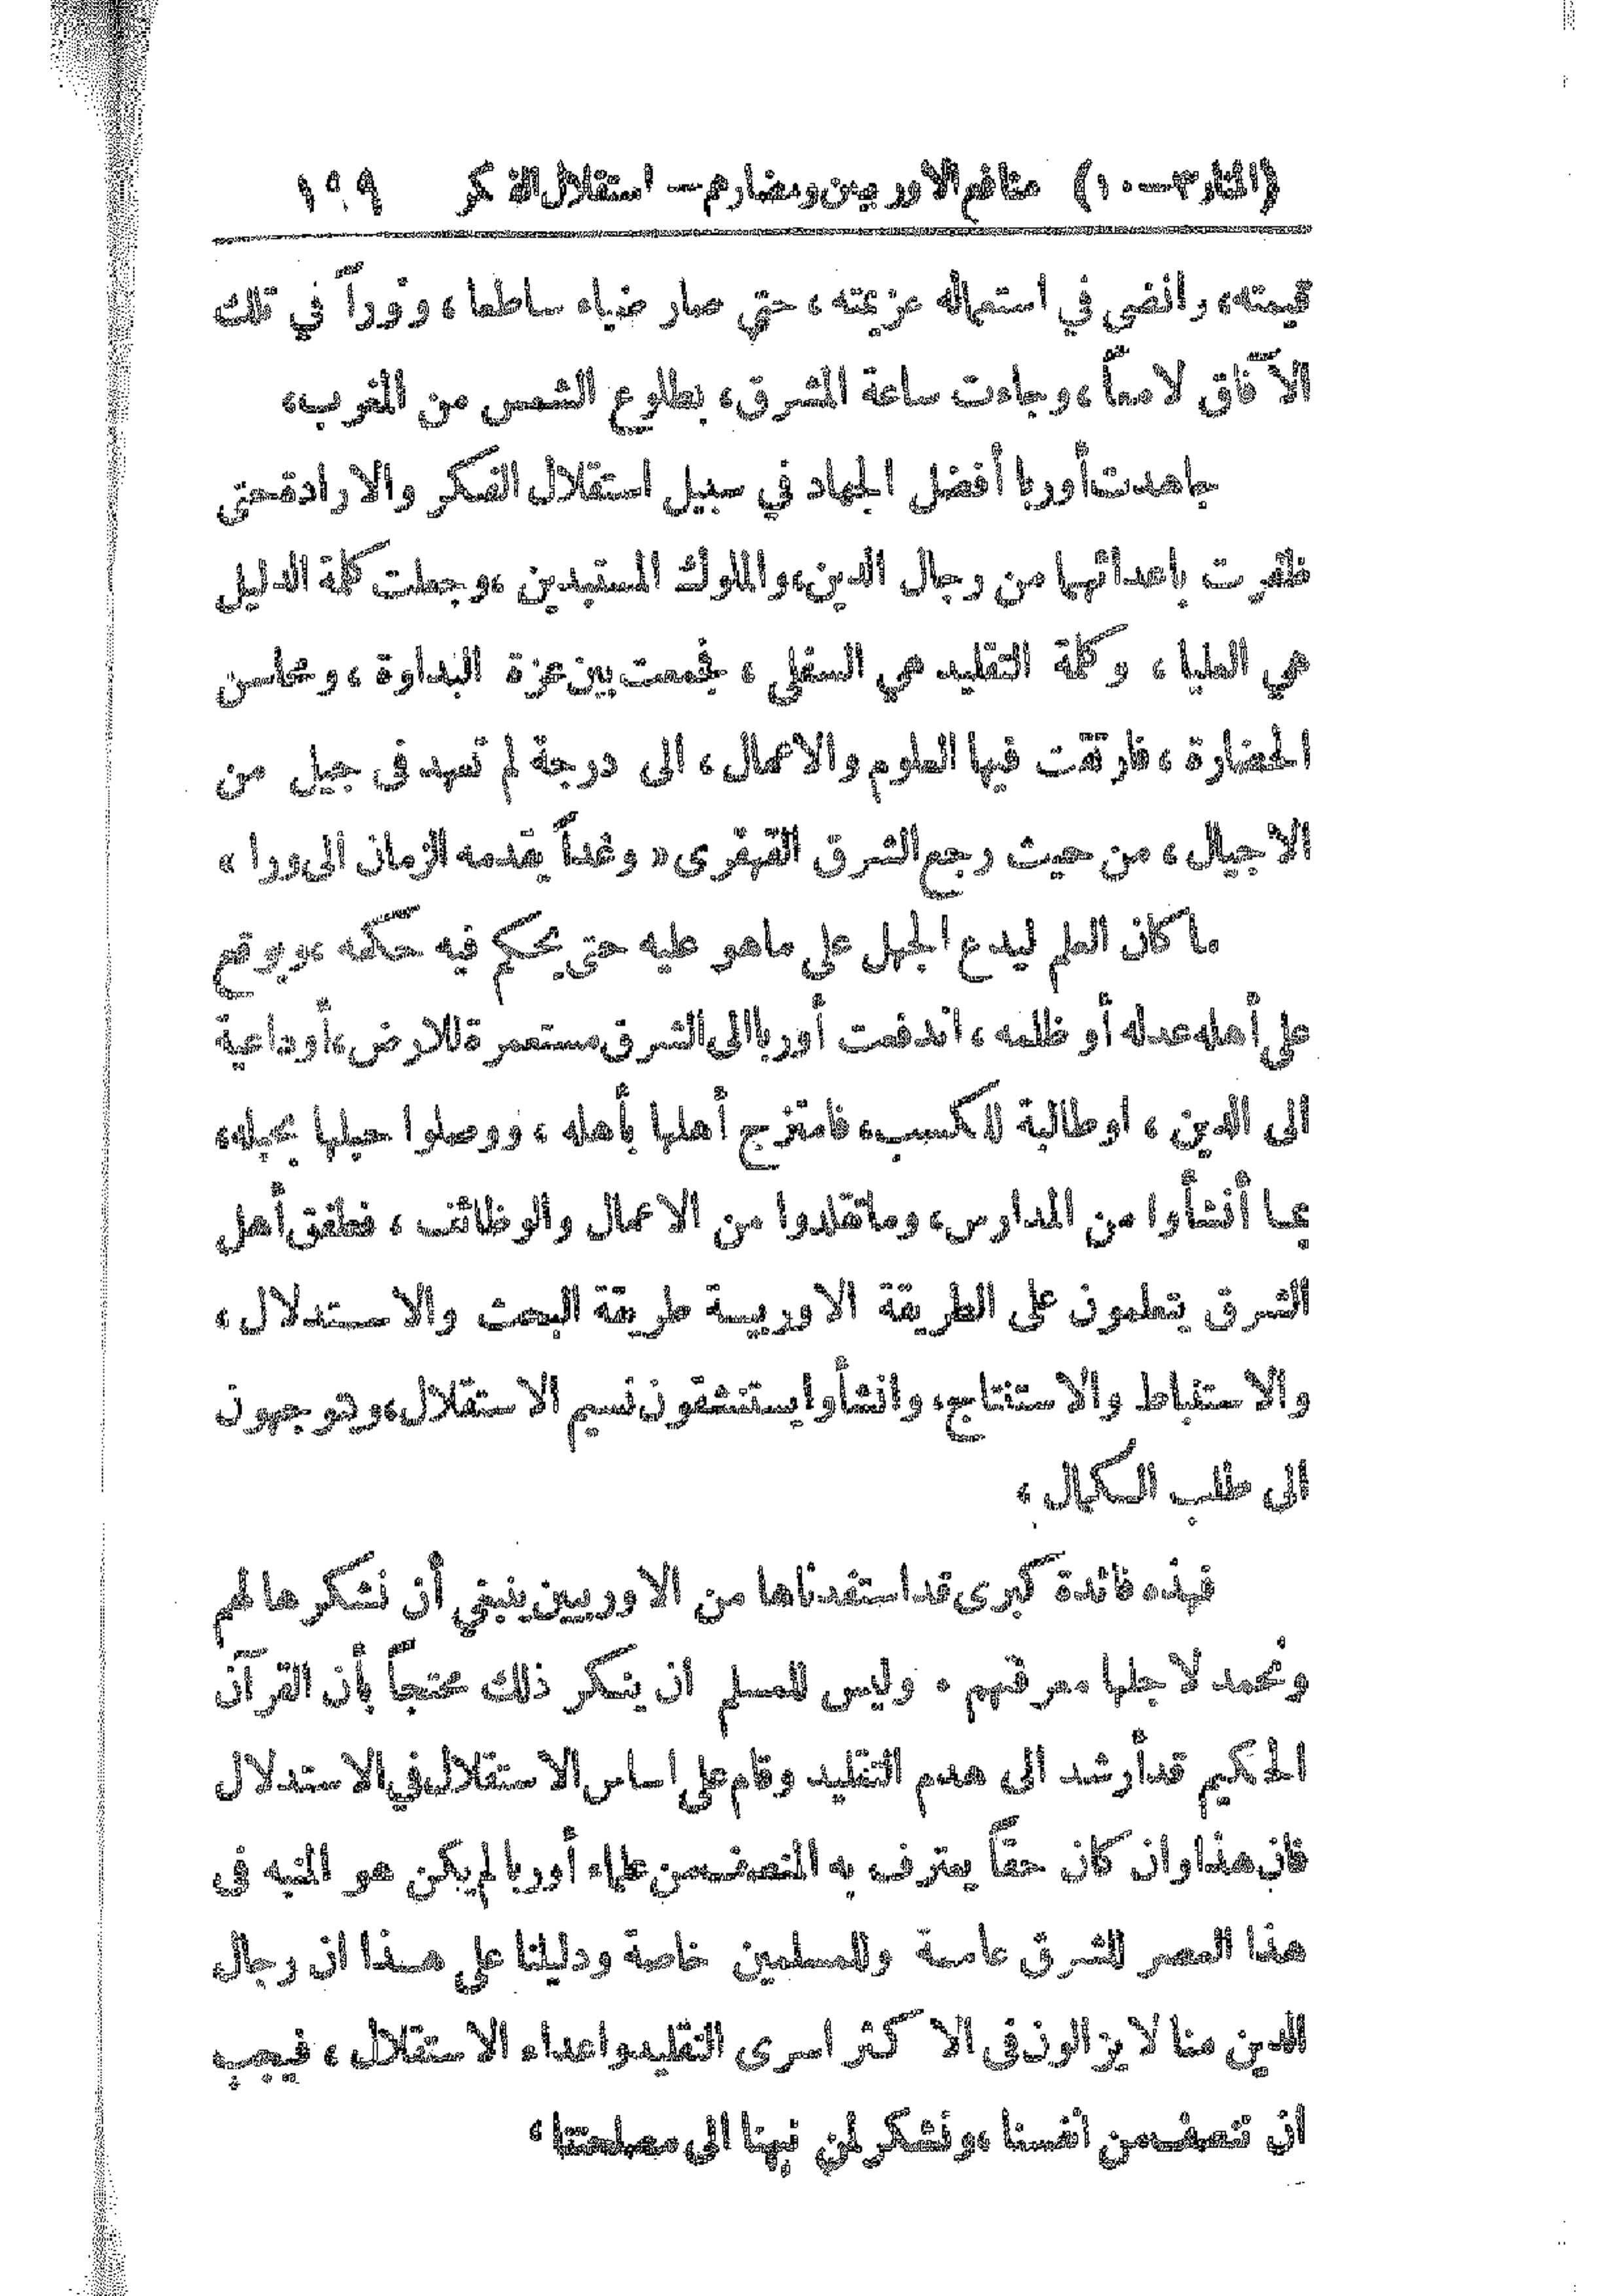 (المنار ٣ – ١٠) منافع الاوربيين ومضارهم – استقلال الفكر ١٩٩
قيمته، وانضى في استعماله عزيمته، حتى صار ضياء ساطعا، ونوراً في تلك
الآفاق لامعاً، وجاءت ساعة المشرق، بطلوع الشمس من المغرب،
جاهدت أوربا أفضل الجهاد في سبيل استقلال الفكر والارادة حتى
ظفرت باعدائها من رجال الدين، والملوك المستبدين، وجعلت كلمة الدليل
هي العليا، وكلمة التقليد هي السفلى، فجمعت بين عزة البداوة، ومحاسن
الحضارة، فارتقت فيها العلوم والاعمال، الى درجة لم تعهد في جيل من
الاجيال، من حيث رجع الشرق القهقرى « وغداً يقدمه الزمان الى ورا »
ما كان العلم ليدع الجهل على ماهو عليه حتى يحكم فيه حكمه، ويوقع
على أهله عدله أو ظلمه، اندفعت أوربا الى الشرق مستعمرة للارض، أو داعية
الى الدين، او طالبة للكسب، فامتزج أهلها بأهله، ووصلوا حبلها بحبله،
بما أنشأوا من المدارس، وما تقلدوا من الاعمال والوظائف، فطفق أهل
الشرق يتعلمون على الطريقة الاوربية طريقة البحث والاستدلال،
والاستنباط والاستنتاج، وانشأوا يستنشقون نسيم الاستقلال، ويتوجهون
الى طلب الكمال،
فهذه فائدة كبرى قد استفدناها من الاوربيين ينبغي أن نشكرها لهم
ونحمد لاجلها معرفتهم. وليس للمسلم ان ينكر ذلك محتجاً بأن القرآن
الحكيم قد أرشد الى هدم التقليد وقام على اساس الاستقلال في الاستدلال
فان هذا وان كان حقاً يعترف به المنصف من علماء أوربا لم يكن هو المنبه في
هذا العصر للشرق عامة وللمسلمين خاصة ودليلنا على هذا ان رجال
الدين منا لا يزالون في الاكثر اسرى التقليد واعداء الاستقلال، فيجب
ان ننصف من انفسنا، ونشكر لمن نبهنا الى مصلحتنا،